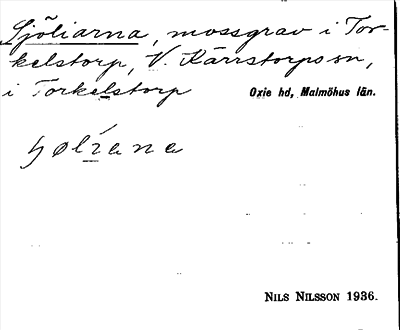 Sjöliarna, mossgrav i Tor-
kelstorp, V. Kärrstorps sn,
i Torkelstorp
Oxie hd, Malmöhus län.
NILS NILSSON 1936.